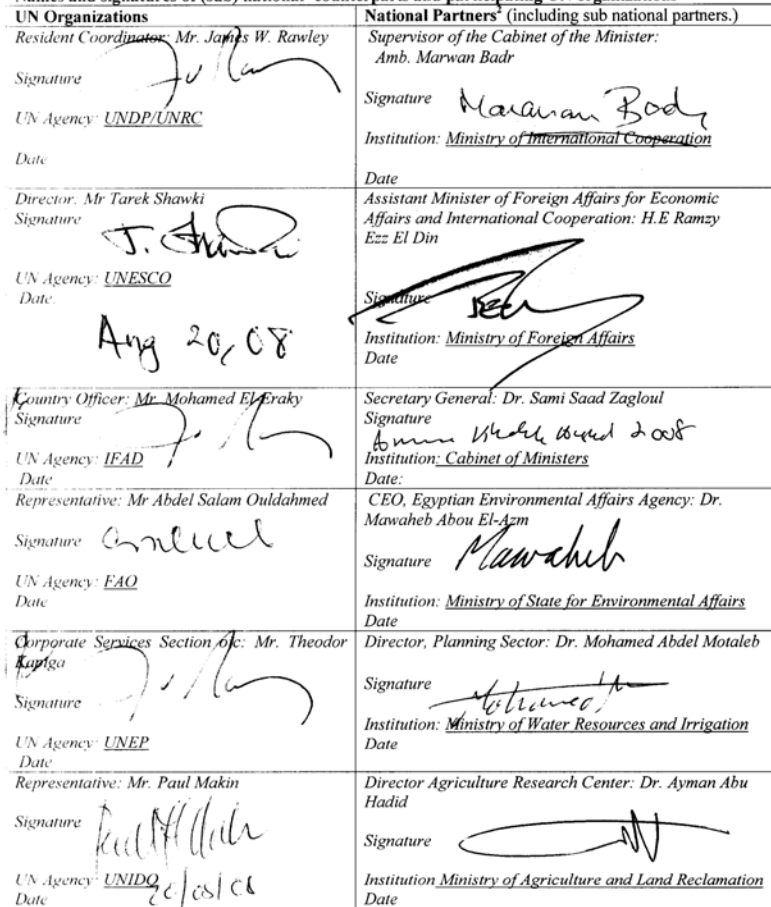 Names and signatures of (sub) national counterparts and participating UN organizations
UN Organizations
Resident Coordinator: Mr. James W. Rawley
Signature
UN Agency: UNDP/UNRC
Date
National Partners² (including sub national partners.)
Supervisor of the Cabinet of the Minister:
Amb. Marwan Badr
Signature Marawan Badr
Institution: Ministry of International Cooperation
Date
Director. Mr Tarek Shawki
Signature
UN Agency: UNESCO
Date.
Aug 20, 08
Assistant Minister of Foreign Affairs for Economic
Affairs and International Cooperation: H.E Ramzy
Ezz El Din
Signature
Institution: Ministry of Foreign Affairs
Date
Country Officer: Mr. Mohamed El Eraky
Signature
UN Agency: IFAD
Date
Secretary General: Dr. Sami Saad Zagloul
Signature
2008
Institution: Cabinet of Ministers
Date:
Representative: Mr Abdel Salam Ouldahmed
Signature
UN Agency: FAO
Date
CEO, Egyptian Environmental Affairs Agency: Dr.
Mawaheb Abou El-Azm
Signature Mawaheb
Institution: Ministry of State for Environmental Affairs
Date
Corporate Services Section o/c: Mr. Theodor
Kapiga
Signature
UN Agency: UNEP
Date
Director, Planning Sector: Dr. Mohamed Abdel Motaleb
Signature
Mohamed
Institution: Ministry of Water Resources and Irrigation
Date
Representative: Mr. Paul Makin
Signature
UN Agency: UNIDO
Date
Director Agriculture Research Center: Dr. Ayman Abu
Hadid
Signature
Institution Ministry of Agriculture and Land Reclamation
Date